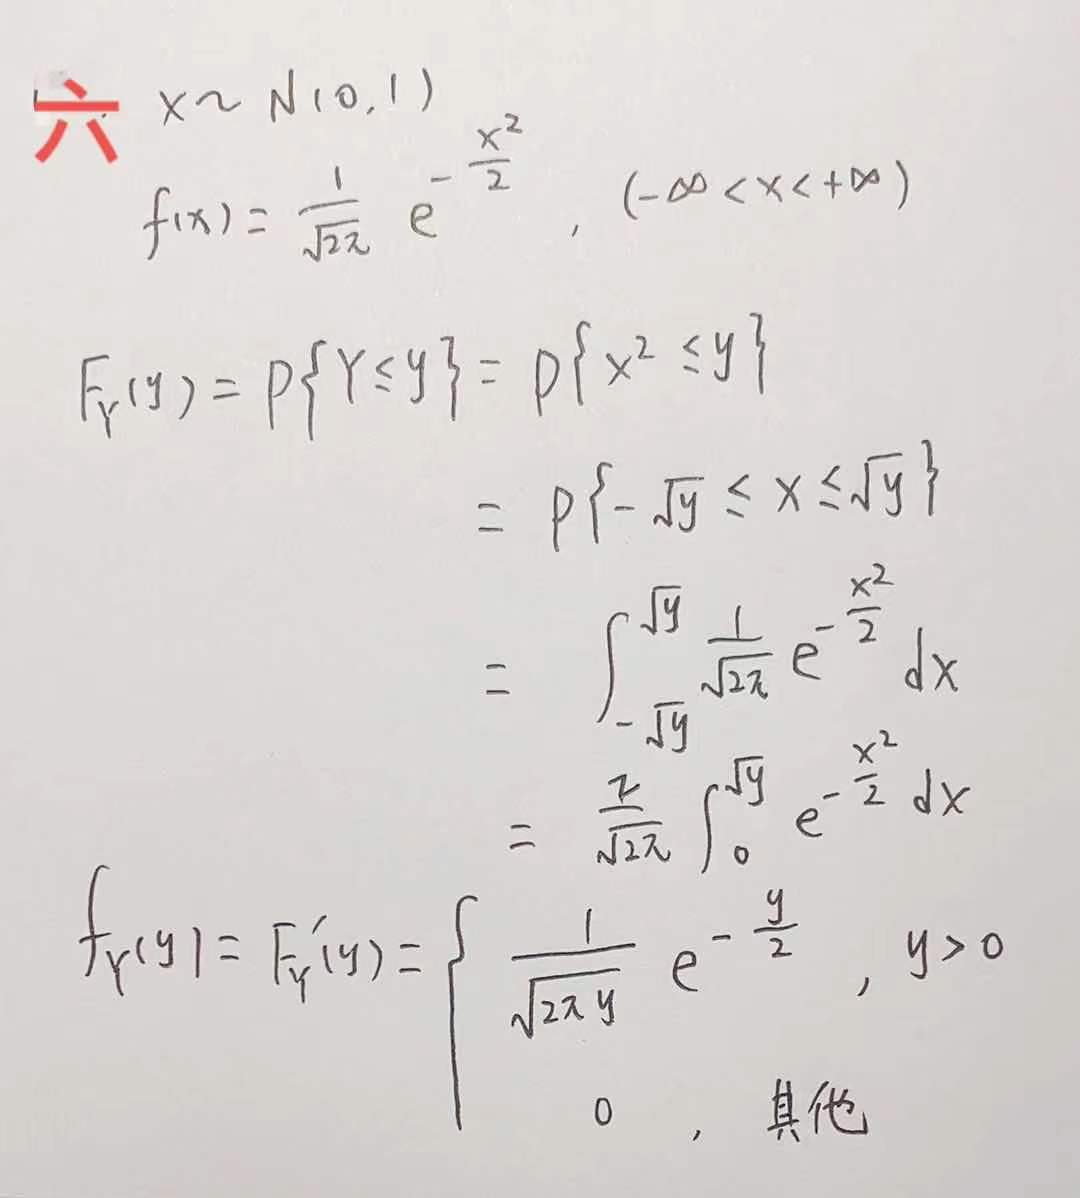 六 X~N(0,1)
f(x)=\frac{1}{\sqrt{2π}} e^{-\frac{x^2}{2}}, (-∞<x<+∞)
F_Y(y)=P{Y≤y}=P{X^2≤y}
=P{-\sqrt{y}≤X≤\sqrt{y}}
=\int_{-\sqrt{y}}^{\sqrt{y}} \frac{1}{\sqrt{2π}} e^{-\frac{x^2}{2}} dx
=\frac{2}{\sqrt{2π}} \int_{0}^{\sqrt{y}} e^{-\frac{x^2}{2}} dx
f_Y(y)=F_Y'(y)={ \frac{1}{\sqrt{2πy}} e^{-\frac{y}{2}}, y>0
0, 其他